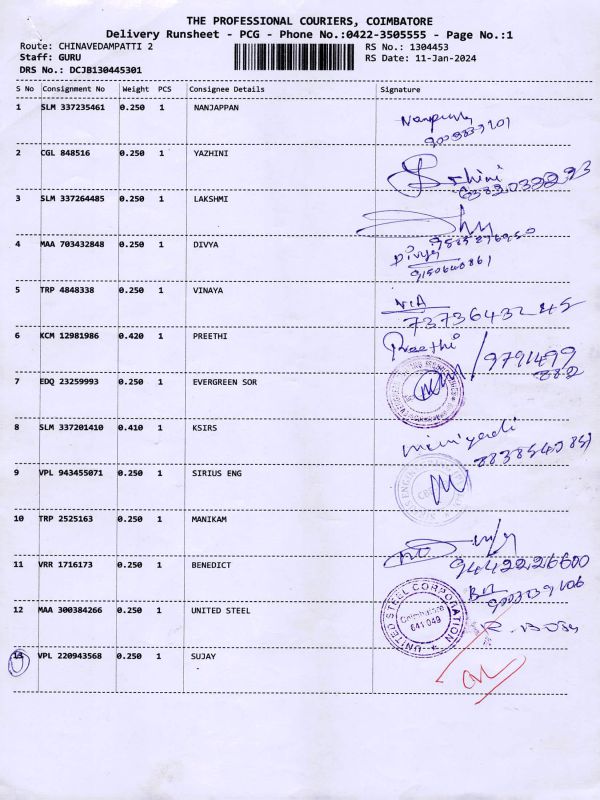 THE PROFESSIONAL COURIERS, COIMBATORE
Delivery Runsheet - PCG - Phone No.:0422-3505555 - Page No.:1
Route: CHINAVEDAMPATTI 2 RS No.: 1304453
Staff: GURU RS Date: 11-Jan-2024
DRS No.: DCJB130445301
S No Consignment No Weight PCS Consignee Details Signature
1 SLM 337235461 0.250 1 NANJAPPAN
2 CGL 848516 0.250 1 YAZHINI
3 SLM 337264485 0.250 1 LAKSHMI
4 MAA 703432848 0.250 1 DIVYA Divya
9150640861
5 TRP 4848338 0.250 1 VINAYA
6 KCM 12981986 0.420 1 PREETHI Preethi
9791499
882
7 EDQ 23259993 0.250 1 EVERGREEN SOR
8 SLM 337201410 0.410 1 KSIRS
9 VPL 943455071 0.250 1 SIRIUS ENG
10 TRP 2525163 0.250 1 MANIKAM
11 VRR 1716173 0.250 1 BENEDICT 9442226600
12 MAA 300384266 0.250 1 UNITED STEEL
UNITED STEEL CORPORATION
Coimbatore
641 049
13 VPL 220943568 0.250 1 SUJAY